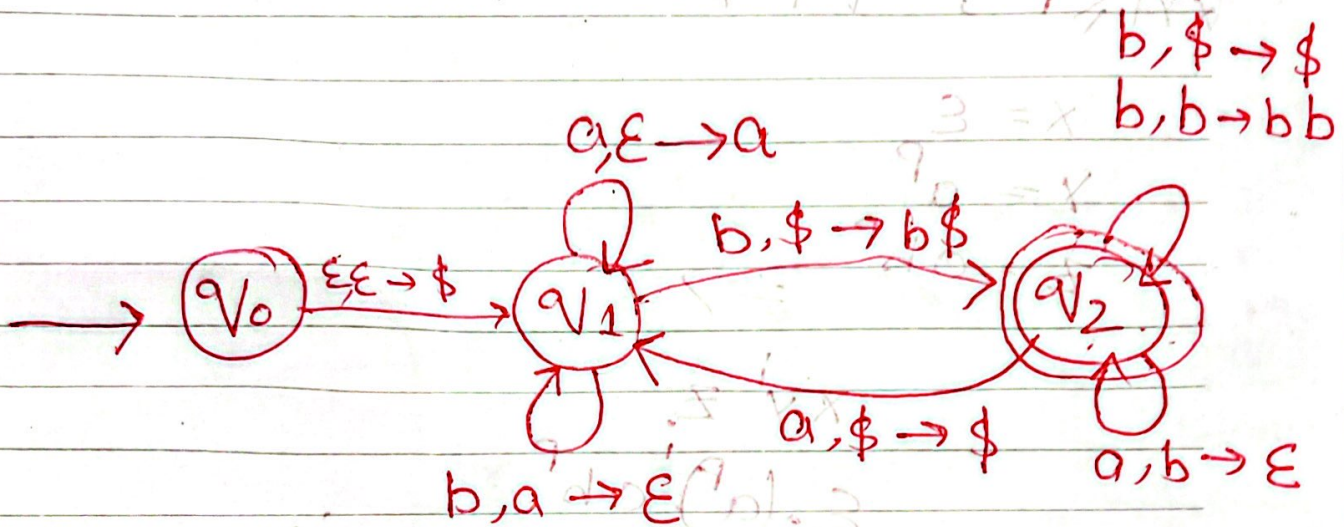 b, $ → $
b, b → bb
a, ε → a
b, $ → b$
ε, ε → $
q0
q1
q2
a, $ → $
a, b → ε
b, a → ε